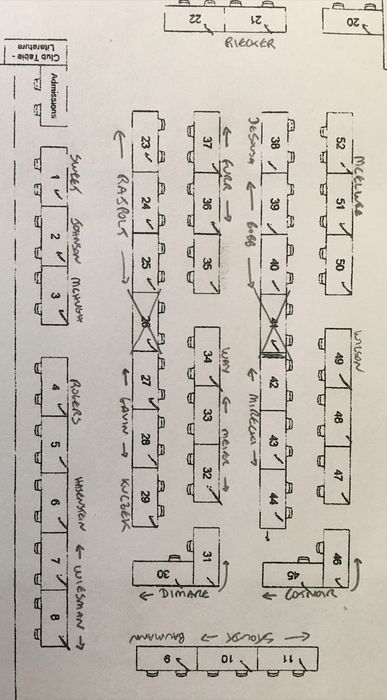 22
21
20
RIECKER
Club Table -
Literature
Admissions
SWEET
JOHNSON
MCHUGH
ROGERS
WIESMAN
1
2
3
4
5
6
7
8
23
24
25
26
27
28
29
RASPOLT
GAVIN
KULZEK
37
36
35
34
33
32
31
30
FURR
WAY
MEIER
DIMARE
38
39
40
41
42
43
44
45
DESOUSA
BOBB
COGNOIR
52
51
50
49
48
47
46
MCCLURE
WILSON
9
10
11
BAUMANN
STOUDT